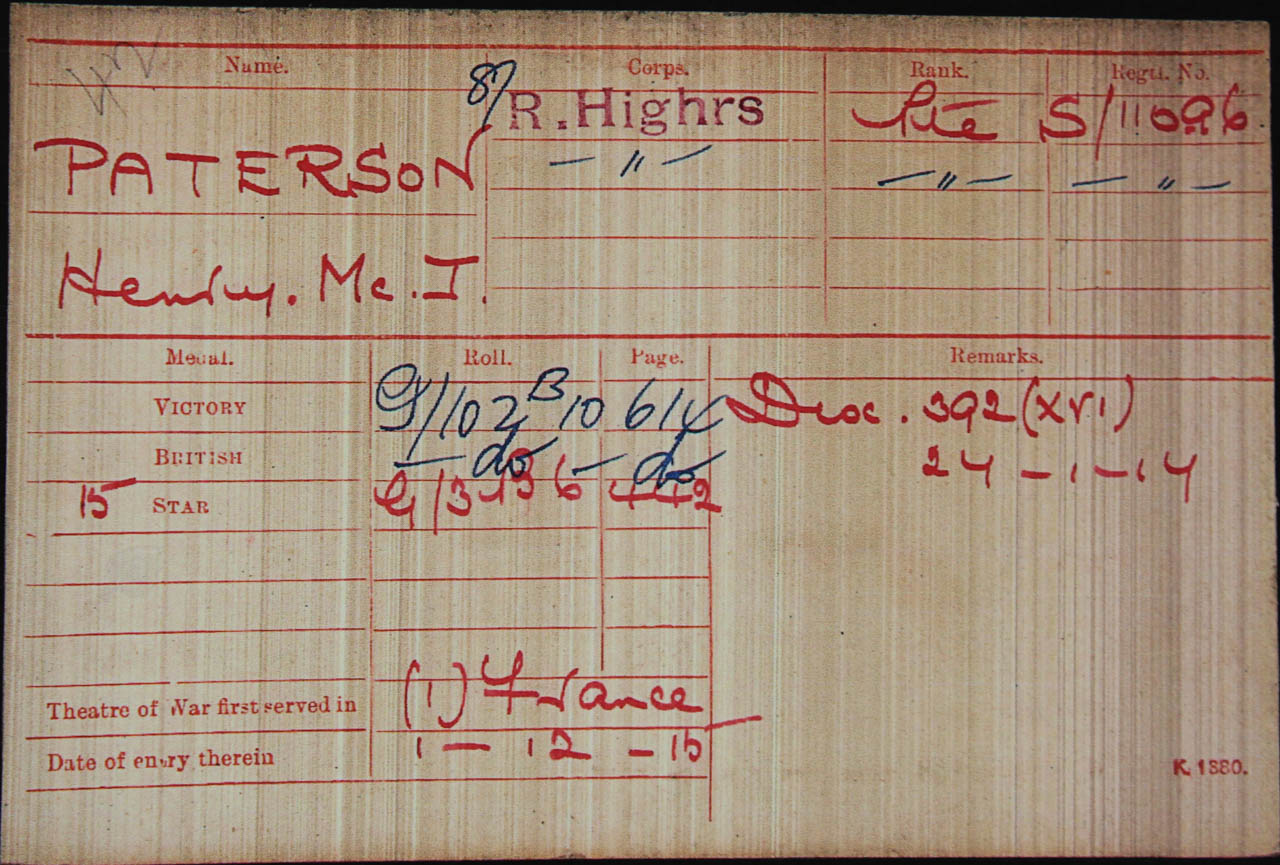 Name. Corps. Rank. Regtl. No.
PATERSON R. Highrs Pte S/11096
— " — — " — — " —
Henry. Mc. I.
Medal. Roll. Page. Remarks.
VICTORY G/102 B 10 614 Disc. 392 (XVI)
BRITISH — do — do 24 - 1 - 14
15 STAR G/3
Theatre of War first served in (1) France
Date of entry therein 1 — 12 — 15
K. 1380.